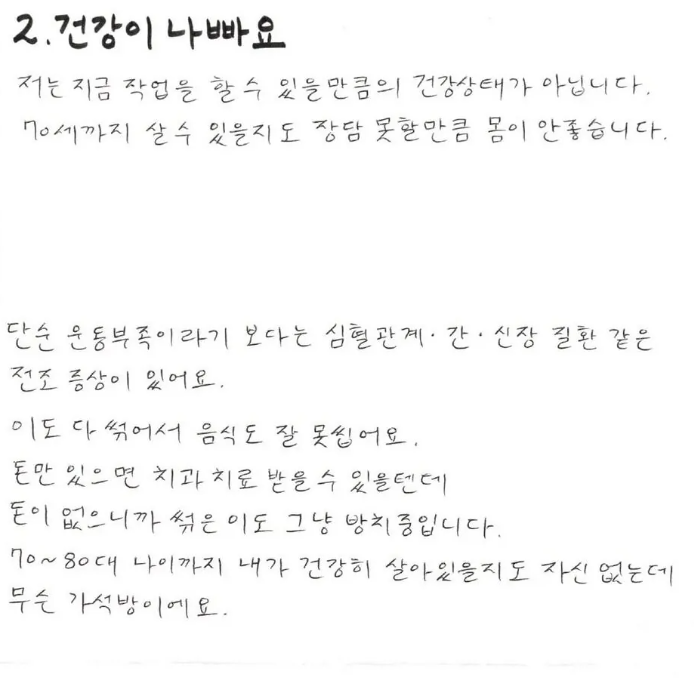 2.건강이 나빠요
저는 지금 작업을 할 수 있을만큼의 건강상태가 아닙니다.
70세까지 살 수 있을지도 장담 못할만큼 몸이 안좋습니다.
단순 운동부족이라기 보다는 심혈관계·간·신장 질환 같은
전조 증상이 있어요.
이도 다 썪어서 음식도 잘 못씹어요.
돈만 있으면 치과치료 받을 수 있을텐데
돈이 없으니까 썪은 이도 그냥 방치중입니다.
70~80대 나이까지 내가 건강히 살아있을지도 자신 없는데
무슨 가석방이에요.